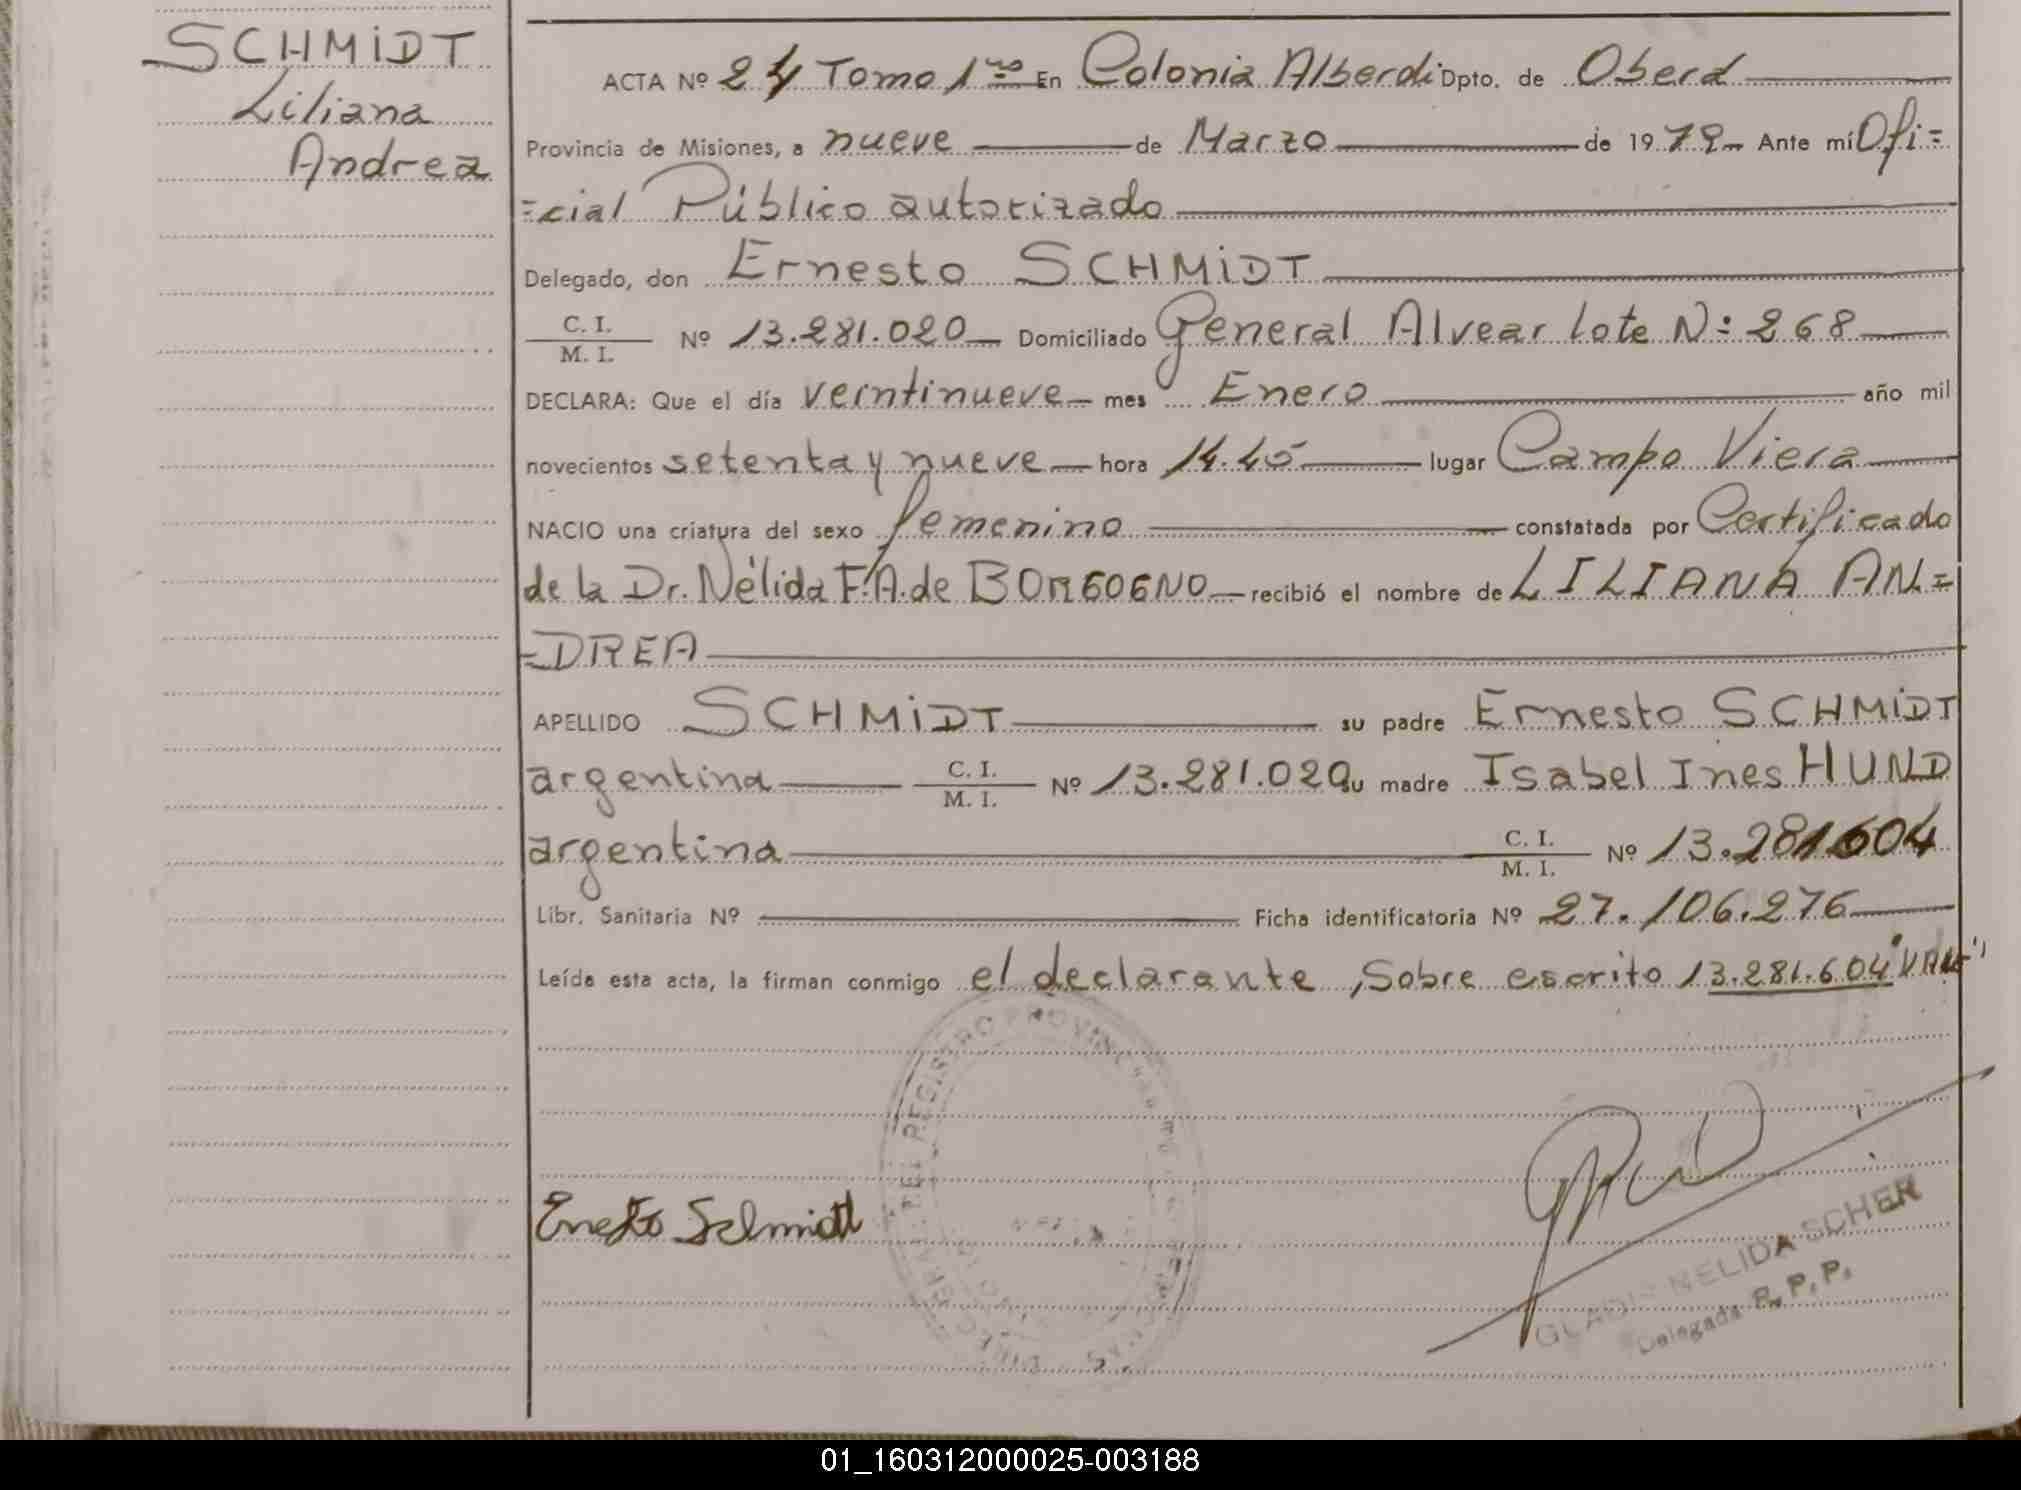 SCHMiDT
Liliana
Andrea
ACTA Nº 24 Tomo 1ro En Colonia Alberdi Dpto. de Oberá
Provincia de Misiones, a nueve de Marzo de 1979 Ante mí Ofi=
=cial Público autorizado
Delegado, don Ernesto SCHMiDT
C. I.
M. I. Nº 13.281.020 Domiciliado General Alvear lote N: 268
DECLARA: Que el día veintinueve mes Enero año mil
novecientos setenta y nueve hora 14.45 lugar Campo Viera
NACIO una criatura del sexo femenino constatada por Certificado
de la Dr. Nélida F.A. de BORGOGNO recibió el nombre de LILIANA AN=
=DREA
APELLIDO SCHMiDT su padre Ernesto SCHMiDT
argentina C. I. M. I. Nº 13.281.020 su madre Isabel Ines HUND
argentina C. I. M. I. Nº 13.281604
Libr. Sanitaria Nº Ficha identificatoria Nº 27.106.276
Leída esta acta, la firman conmigo el declarante, Sobre escrito 13.281.604 "VALE"
REGISTRO PROVINCIAL
Ernesto Schmidt
GLADIS NELIDA SCHER
Delegada R. P. P.
01_160312000025-003188